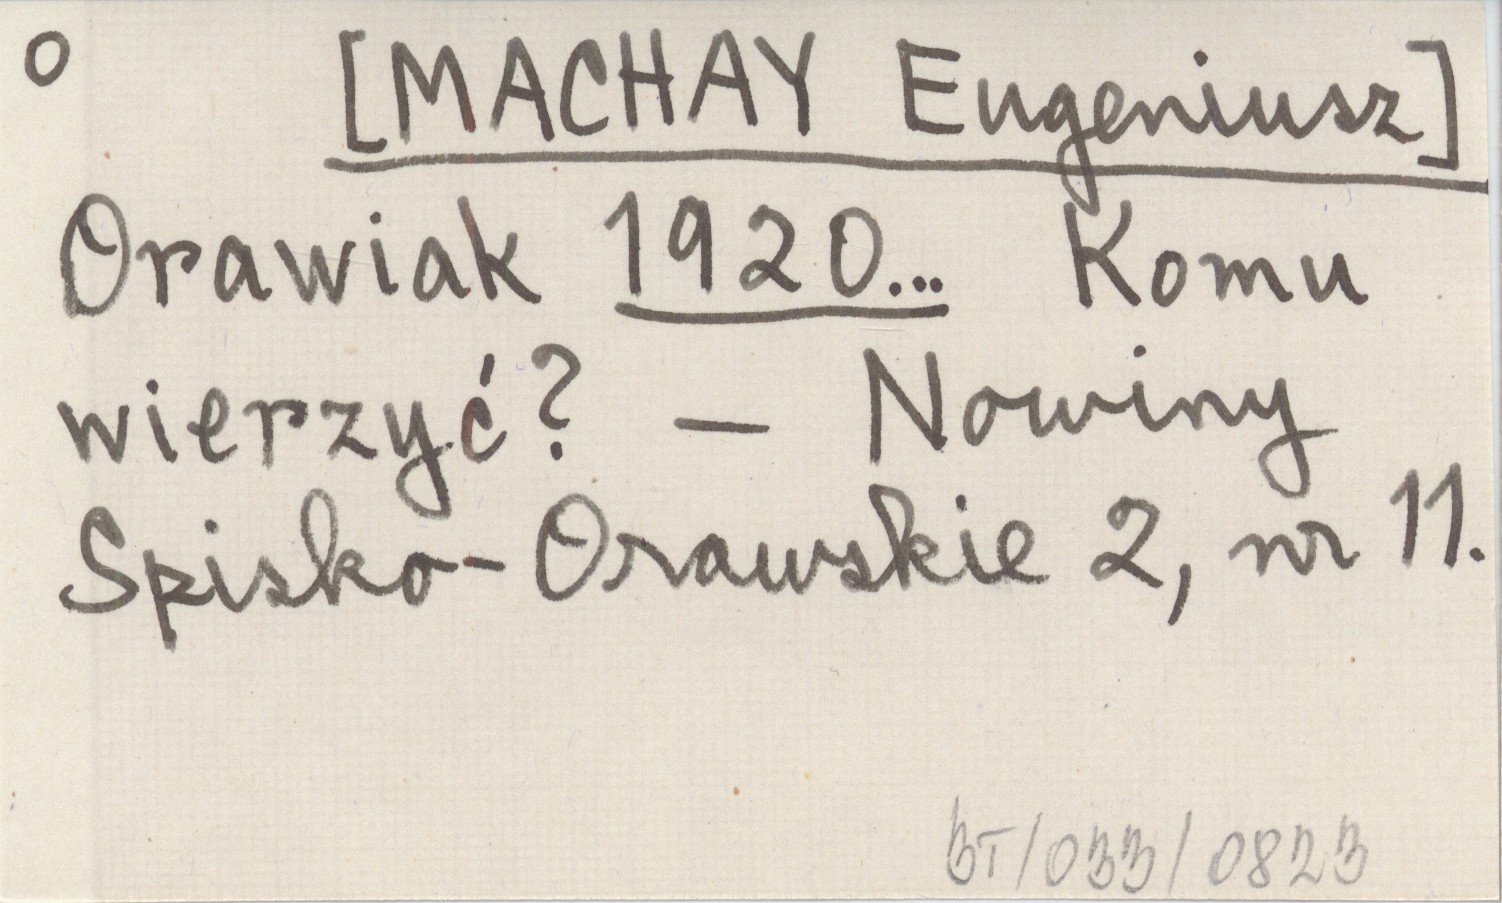 o [MACHAY Eugeniusz]
Orawiak 1920... Komu
wierzyć? — Nowiny
Spisko-Orawskie 2, nr 11.
BT/033/0823